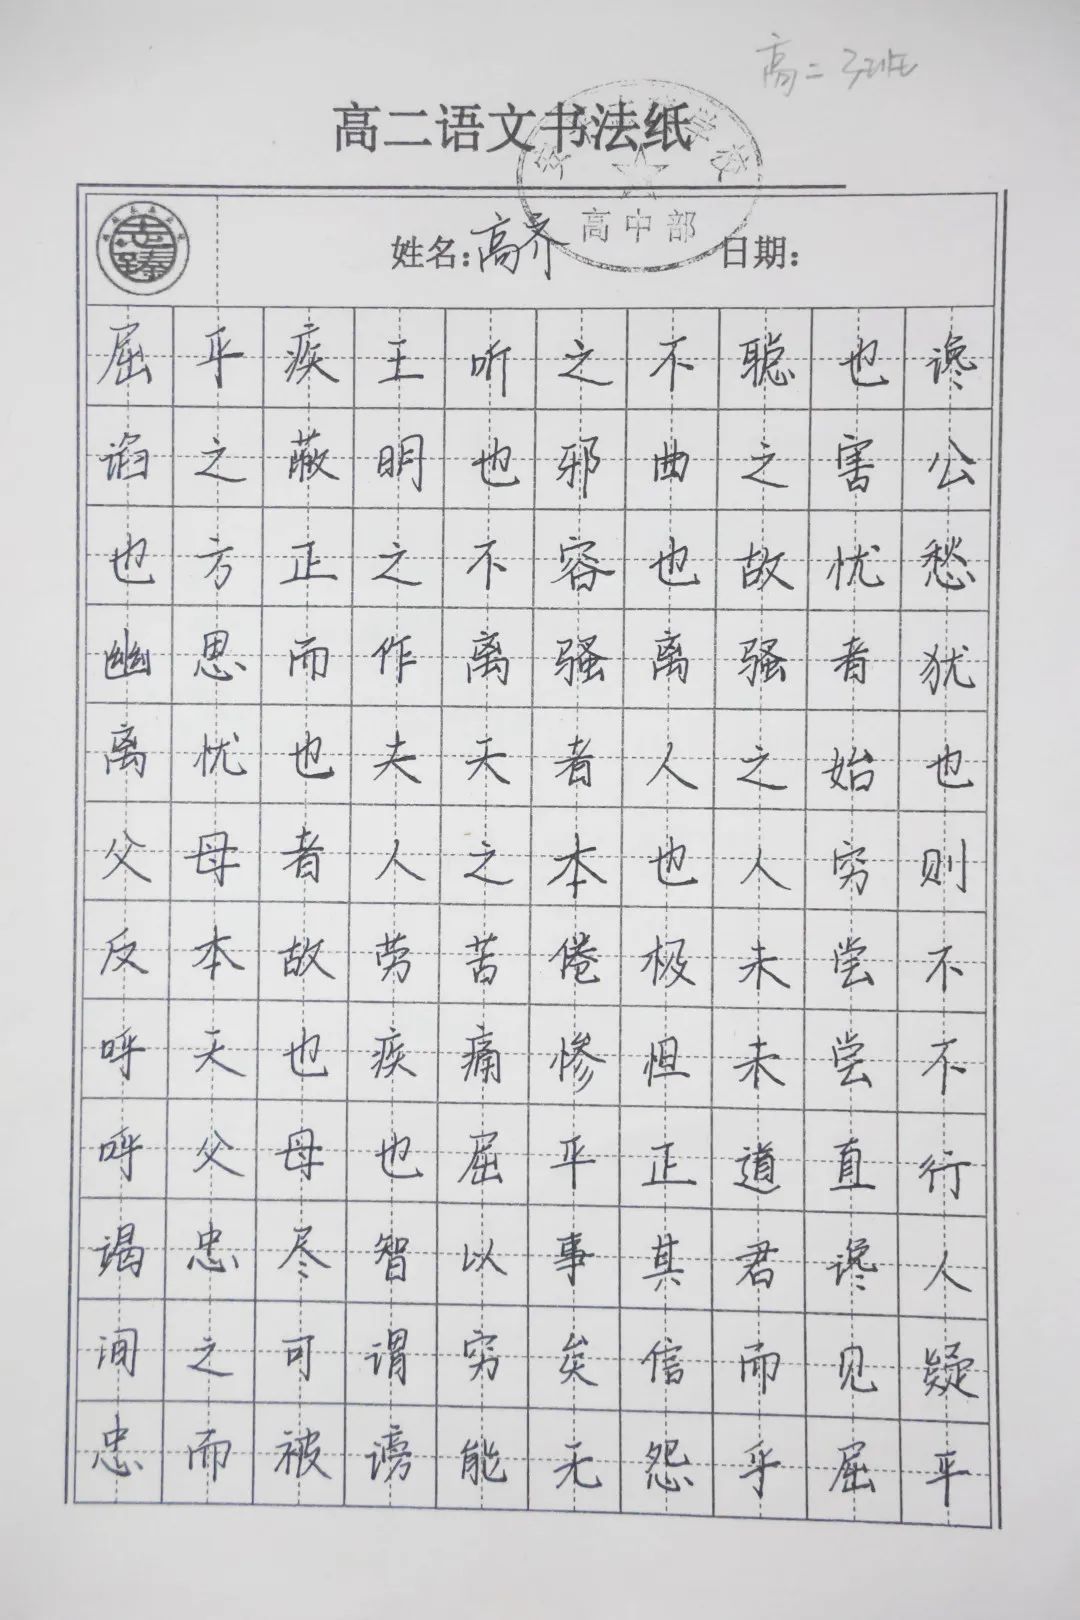 高二 3班
高二语文书法纸
学校
高中部
姓名:高齐 日期:
屈平疾王听之不聪也谗
谄之蔽明也邪曲之害公
也方正之不容也故忧愁
幽思而作离骚离骚者犹
离忧也夫天者人之始也
父母者人之本也人穷则
反本故劳苦倦极未尝不
呼天也疾痛惨怛未尝不
呼父母也屈平正道直行
竭忠尽智以事其君谗人
间之可谓穷矣信而见疑
忠而被谤能无怨乎屈平